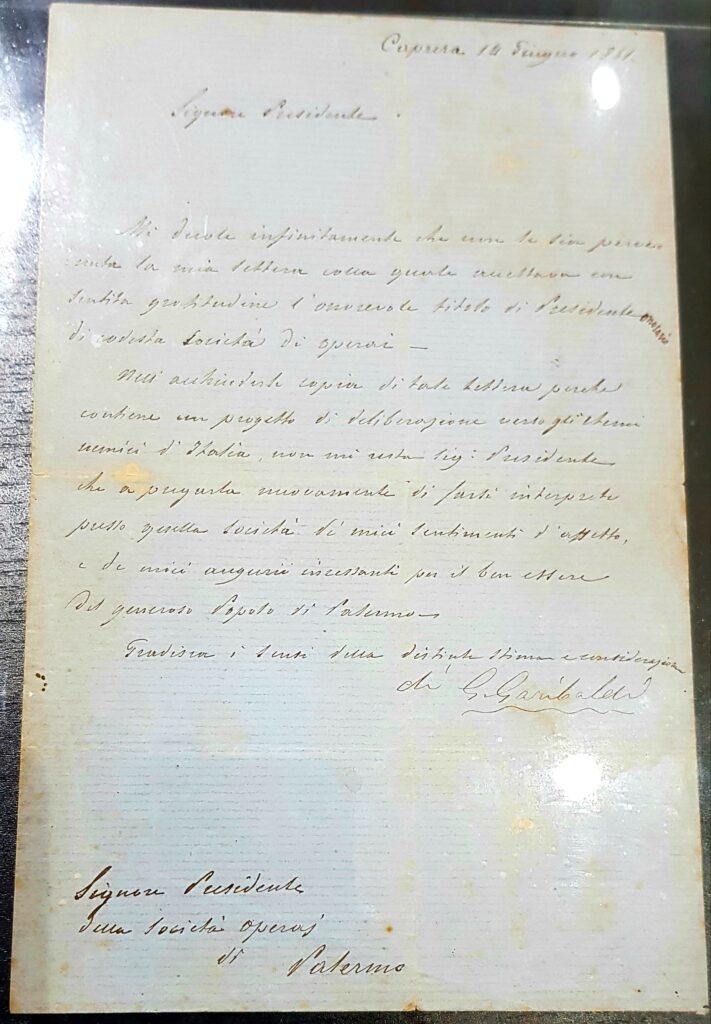 Caprera 14 Giugno 1861.
Signore Presidente.
Mi duole infinitamente che non le sia perve-
nuta la mia lettera colla quale accettava con
sentita gratitudine l'onorevole titolo di Presidente onorario
di codesta Società di operai —
Nell' acchiuderle copia di tale lettera perchè
contiene un progetto di deliberazione verso gli eterni
nemici d'Italia, non mi resta Sig. Presidente
che a pregarla nuovamente di farsi interprete
presso quella Società de' miei sentimenti d'affetto,
e de miei augurii incessanti per il ben essere
del generoso Popolo di Palermo —
Gradisca i sensi della distinta stima e considerazione
di G. Garibaldi
Signore Presidente
della Società operai
di Palermo